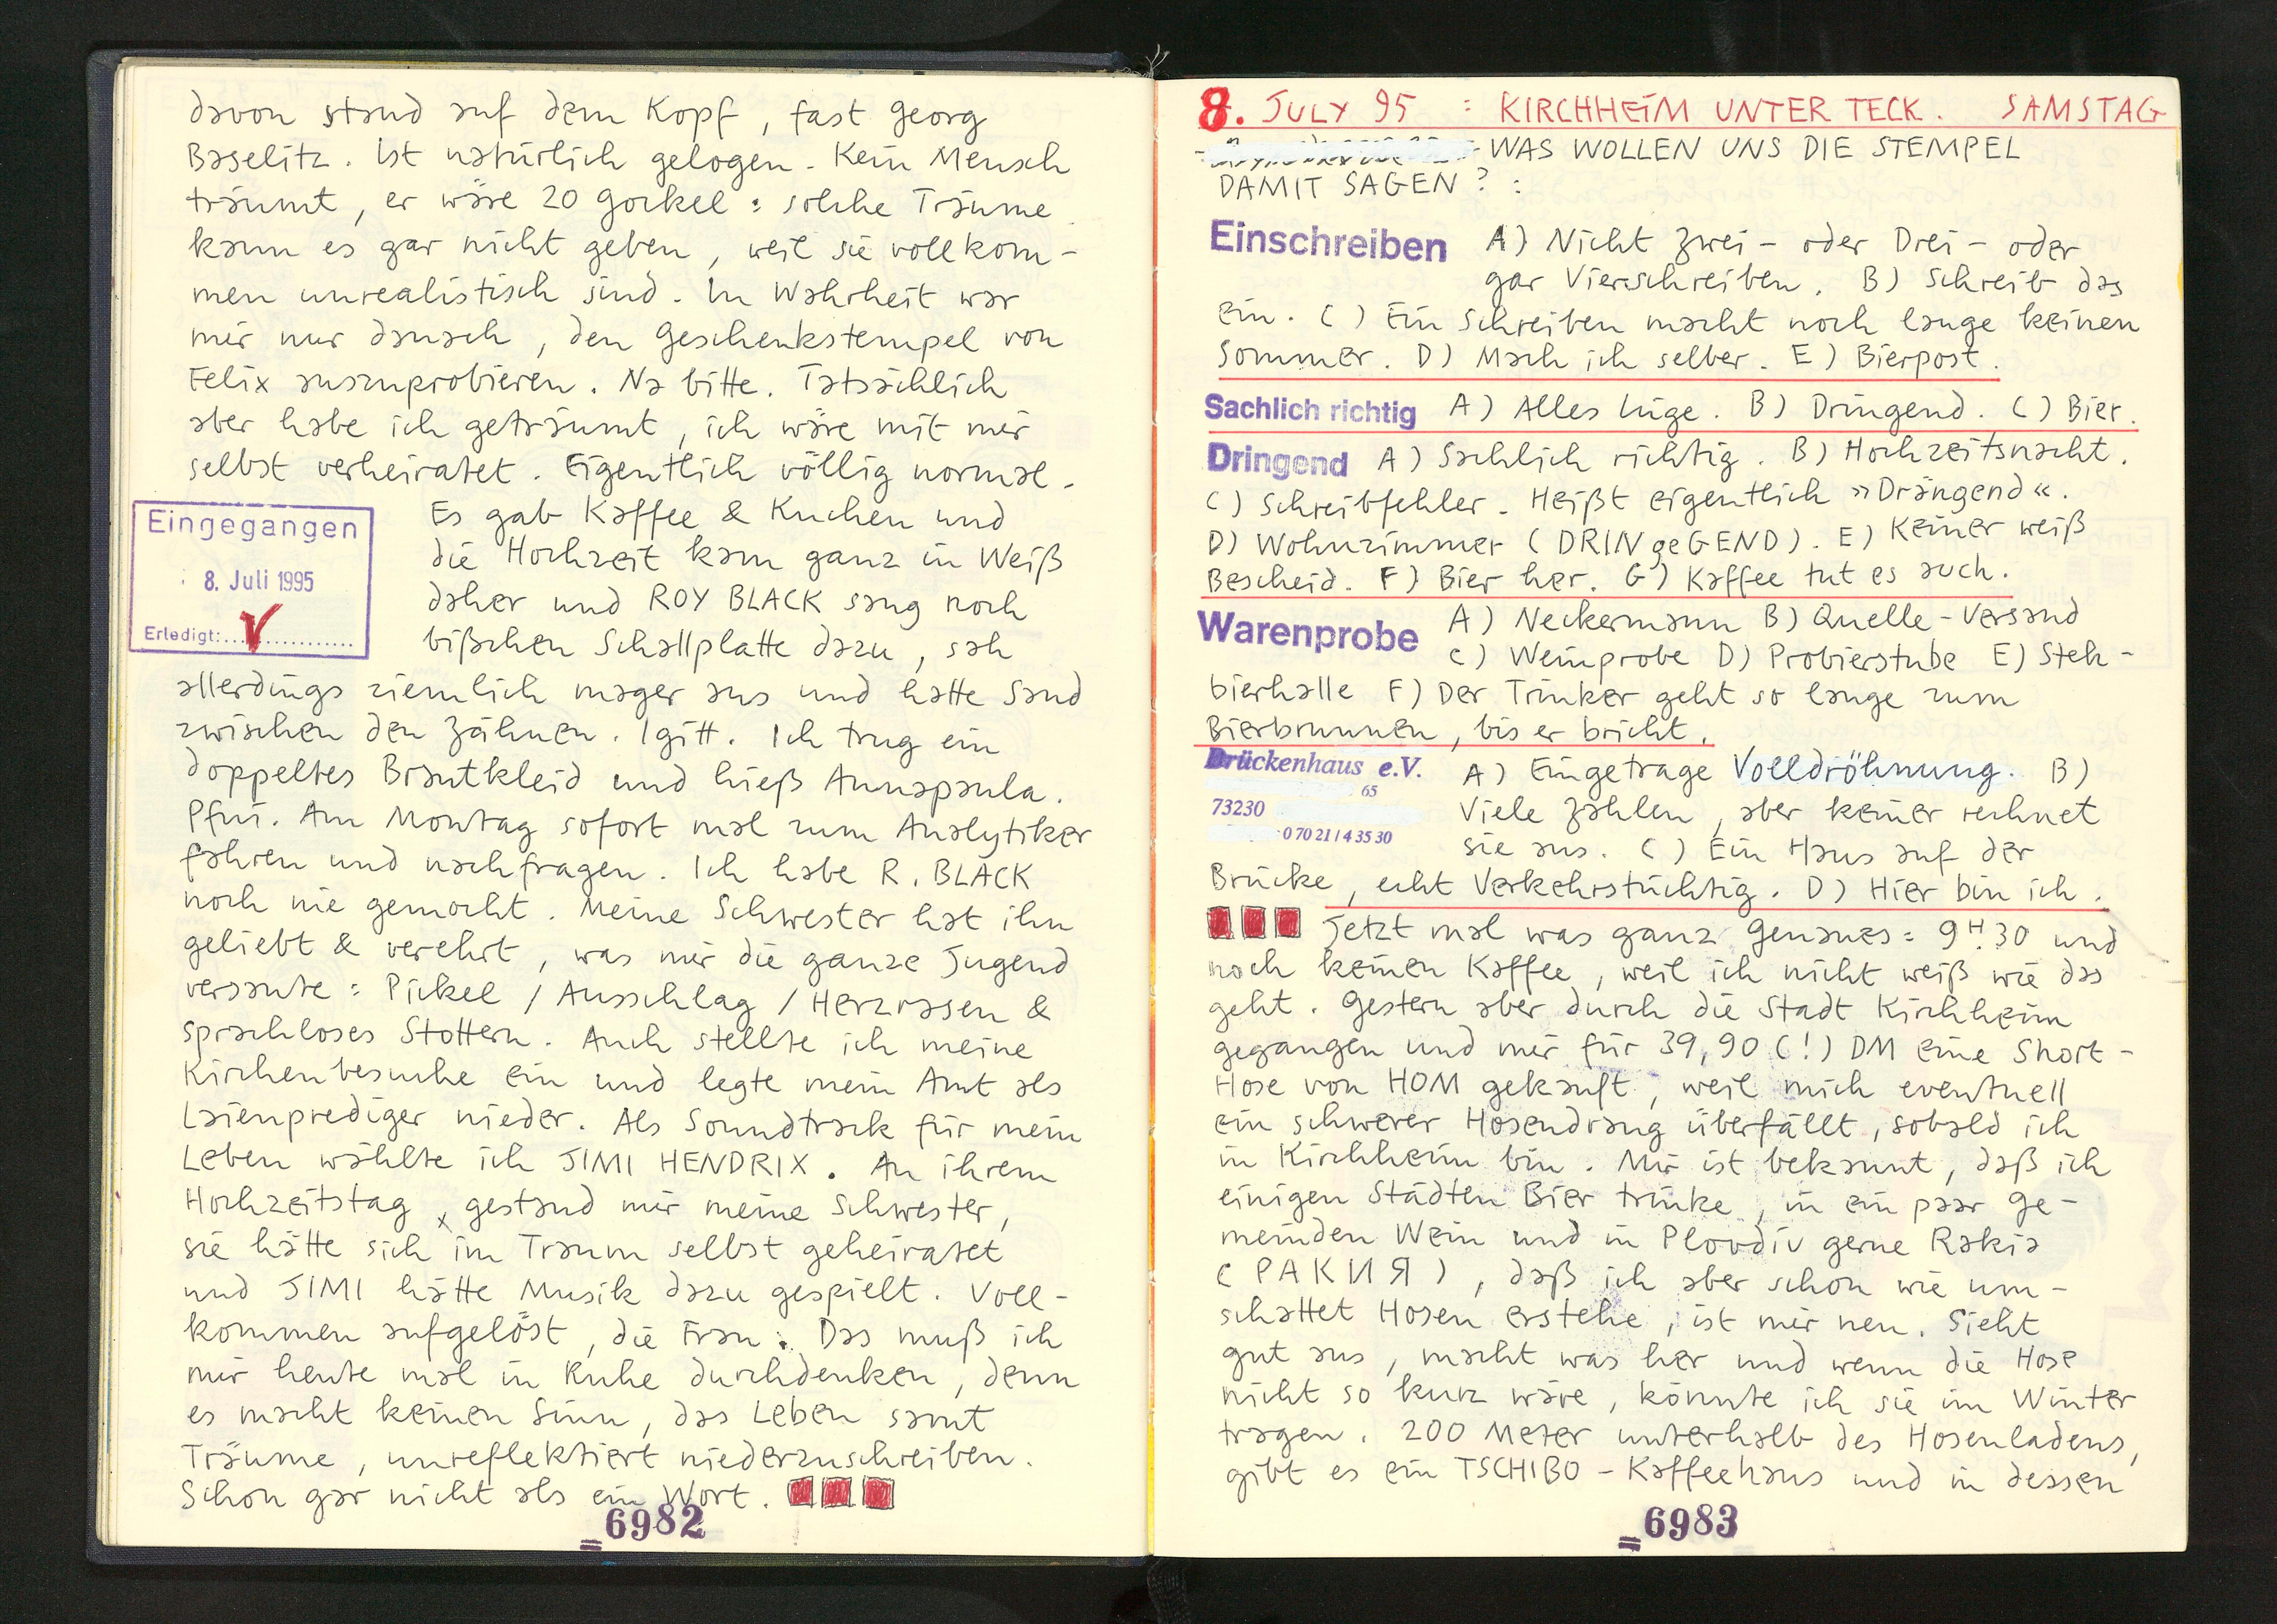 davon stand auf dem Kopf, fast Georg
Baselitz. Ist natürlich gelogen. Kein Mensch
träumt, er wäre 20 Gockel: solche Träume
kann es gar nicht geben, weil sie vollkom-
men unrealistisch sind. In Wahrheit war
mir nur danach, den Geschenkstempel von
Felix auszuprobieren. Na bitte. Tatsächlich
aber habe ich geträumt, ich wäre mit mir
selbst verheiratet. Eigentlich völlig normal.
Eingegangen
8. Juli 1995
Erledigt:
Es gab Kaffee & Kuchen und
die Hochzeit kam ganz in Weiß
daher und ROY BLACK sang noch
bißchen Schallplatte dazu, sah
allerdings ziemlich mager aus und hatte Sand
zwischen den Zähnen. Igitt. Ich trug ein
doppeltes Brautkleid und hieß Annapaula.
Pfui. Am Montag sofort mal zum Analytiker
fahren und nachfragen. Ich habe R. BLACK
noch nie gemocht. Meine Schwester hat ihn
geliebt & verehrt, was mir die ganze Jugend
versaute: Pickel / Ausschlag / Herzrasen &
sprachloses Stottern. Auch stellte ich meine
Kirchenbesuche ein und legte mein Amt als
Laienprediger nieder. Als Soundtrack für mein
Leben wählte ich JIMI HENDRIX. An ihrem
Hochzeitstag x gestand mir meine Schwester,
sie hätte sich im Traum selbst geheiratet
und JIMI hätte Musik dazu gespielt. Voll-
kommen aufgelöst, die Frau. Das muß ich
mir heute mal in Ruhe durchdenken, denn
es macht keinen Sinn, das Leben samt
Träume, unreflektiert niederzuschreiben.
Schon gar nicht als ein Wort.
=6982
8. JULY 95 : KIRCHHEIM UNTER TECK. SAMSTAG
WAS WOLLEN UNS DIE STEMPEL
DAMIT SAGEN? :
Einschreiben A) Nicht Zwei- oder Drei- oder
gar Vierschreiben. B) Schreib das
ein. C) Ein Schreiben macht noch lange keinen
Sommer. D) Mach ich selber. E) Bierpost.
Sachlich richtig A) Alles Lüge. B) Dringend. C) Bier.
Dringend A) Sachlich richtig. B) Hochzeitsnacht.
C) Schreibfehler. Heißt eigentlich »Drängend«.
D) Wohnzimmer (DRIN geGEND). E) Keiner weiß
Bescheid. F) Bier her. G) Kaffee tut es auch.
Warenprobe A) Neckermann B) Quelle-Versand
C) Weinprobe D) Probierstube E) Steh-
bierhalle F) Der Trinker geht so lange zum
Bierbrunnen, bis er bricht.
Drückenhaus e.V.
65
73230
07021/43530
A) Eingetrage Volldröhnung. B)
Viele Zahlen, aber keiner rechnet
sie aus. C) Ein Haus auf der
Brücke, echt Verkehrstüchtig. D) Hier bin ich.
Jetzt mal was ganz Genaues: 9H.30 und
noch keinen Kaffee, weil ich nicht weiß wie das
geht. Gestern aber durch die Stadt Kirchheim
gegangen und mir für 39,90 (!) DM eine Short-
Hose von HOM gekauft, weil mich eventuell
ein schwerer Hosendrang überfällt, sobald ich
in Kirchheim bin. Mir ist bekannt, daß ich
einigen Städten Bier trinke, in ein paar Ge-
meinden Wein und in Plovdiv gerne Rakia
(РАКИЯ), daß ich aber schon wie um-
schattet Hosen erstehe, ist mir neu. Sieht
gut aus, macht was her und wenn die Hose
nicht so kurz wäre, könnte ich sie im Winter
tragen. 200 Meter unterhalb des Hosenladens,
gibt es ein TSCHIBO-Kaffeehaus und in dessen
=6983